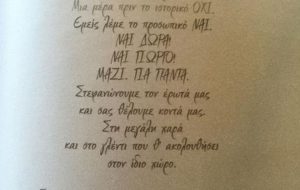 Μια μέρα πριν το ιστορικό ΟΧΙ.
Εμείς λέμε το προσωπικό ΝΑΙ.
ΝΑΙ ΔΩΡΑ!
ΝΑΙ ΓΙΩΡΓΟ!
ΜΑΖΙ. ΓΙΑ ΠΑΝΤΑ.
Στεφανώνουμε τον έρωτά μας
και σας θέλουμε κοντά μας.
Στη μεγάλη χαρά
και στο γλέντι που θ' ακολουθήσει
στον ίδιο χώρο.